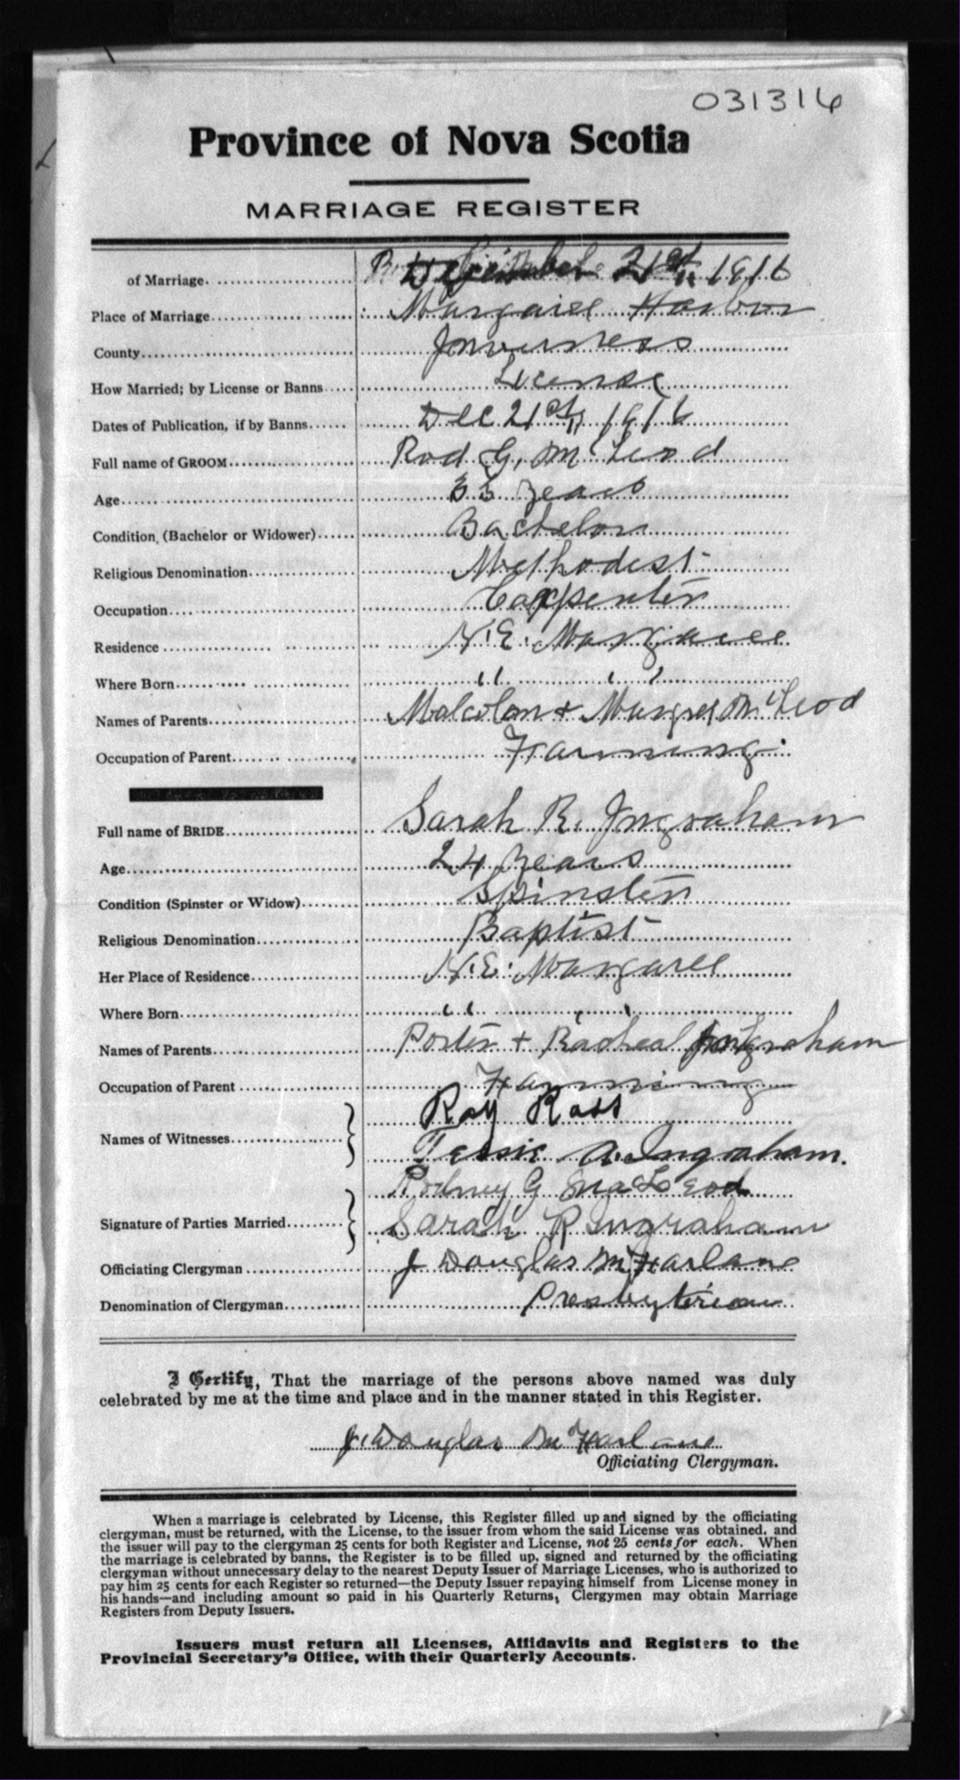 031316
Province of Nova Scotia
MARRIAGE REGISTER
of Marriage December 21st, 1916
Place of Marriage Margaree Harbor
County Inverness
How Married; by License or Banns License
Dates of Publication, if by Banns Dec 21st, 1916
Full name of GROOM Rod G. McLeod
Age 33 years
Condition, (Bachelor or Widower) Bachelor
Religious Denomination Methodist
Occupation Carpenter
Residence N.E. Margaree
Where Born " "
Names of Parents Malcolm + McLeod
Occupation of Parent Farming
Full name of BRIDE Sarah R. Ingraham
Age 24 years
Condition (Spinster or Widow) Spinster
Religious Denomination Baptist
Her Place of Residence N.E. Margaree
Where Born " "
Names of Parents Porter + Racheal Ingraham
Occupation of Parent Farming
Names of Witnesses Roy Ross
Tessie A. Ingraham.
Signature of Parties Married Rodney G MacLeod
Sarah R Ingraham
Officiating Clergyman J Douglas McFarlane
Denomination of Clergyman Presbyterian
I Certify, That the marriage of the persons above named was duly
celebrated by me at the time and place and in the manner stated in this Register.
J. Douglas McFarlane
Officiating Clergyman.
When a marriage is celebrated by License, this Register filled up and signed by the officiating
clergyman, must be returned, with the License, to the issuer from whom the said License was obtained, and
the issuer will pay to the clergyman 25 cents for both Register and License, not 25 cents for each. When
the marriage is celebrated by banns, the Register is to be filled up, signed and returned by the officiating
clergyman without unnecessary delay to the nearest Deputy Issuer of Marriage Licenses, who is authorized to
pay him 25 cents for each Register so returned—the Deputy Issuer repaying himself from License money in
his hands—and including amount so paid in his Quarterly Returns, Clergymen may obtain Marriage
Registers from Deputy Issuers.
Issuers must return all Licenses, Affidavits and Registers to the
Provincial Secretary's Office, with their Quarterly Accounts.